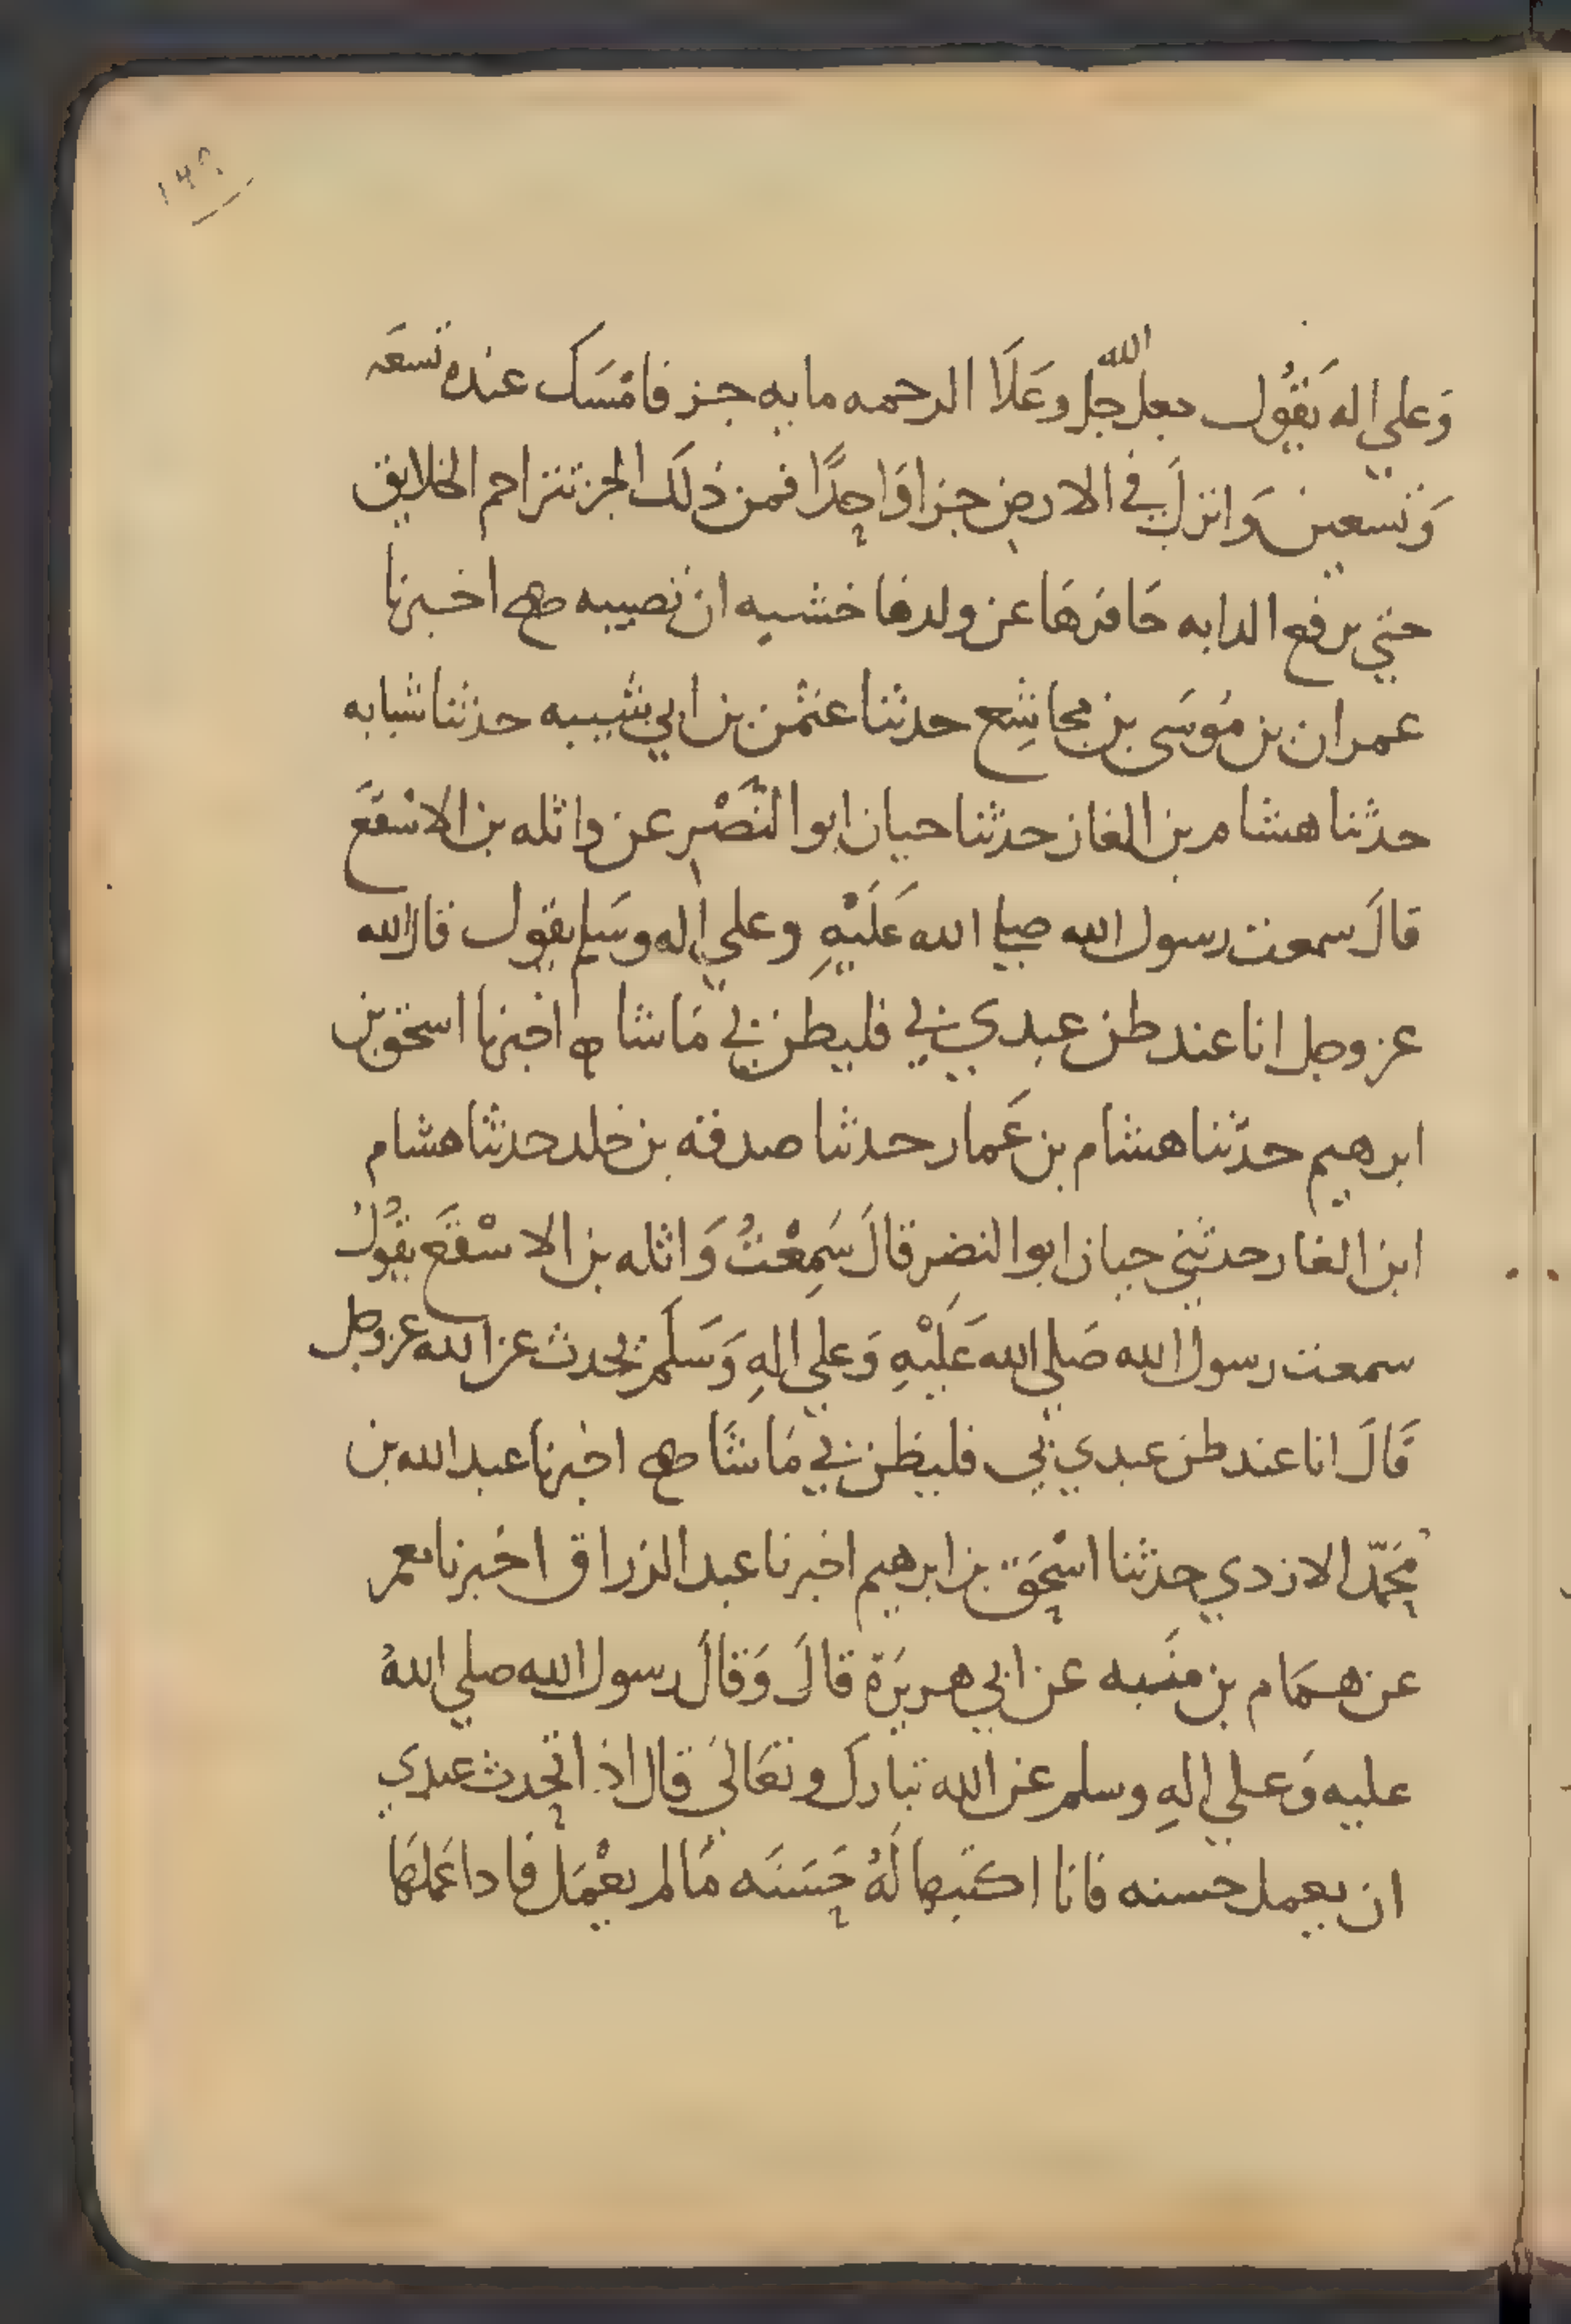 ١٤٩
وَعلي اله يَقُول جعل الله جَل وعَلَا الرحمه مايه جز فامْسَك عنده تسعَه
وَتسعين وَانزلَ في الارضِ جزا وَاحِدًا فمن ذلَك الجز تتراحم الخلايق
حتي يرفع الدابه حَافرهَا عن ولدها خشيه ان تصيبه صح اخبرنا
عمران بن مُوسَى بن مجاشِع حدثنا عثمٰن بن ابي شيبه حدثنا شبابه
حدثنا هشام بن الغاز حدثنا حيان ابو النَّضْرِ عن واثله بن الاسْقَع
قالَ سمعت رسول الله صلي الله عَلَيْهِ وعلي اله وسَلم يقول قال الله
عز وجل انا عند ظن عبدي بي فليظن بي مَا شا صح اخبرنا اسحق بن
ابرهيم حدّثنا هشام بن عَمار حدثنا صدقه بن خلد حدثنا هشام
ابن الغاز حدثني حيان ابو النضر قالَ سَمِعْتُ وَاثله بن الاسْقَع يقُولُ
سمعت رسول الله صَلي الله عَلَيْهِ وَعلي الهِ وَسَلَم يحدث عن الله عز وجل
قَالَ انا عند ظن عبدي بي فليظن بي مَا شَا صح اخبرنا عبد الله بن
مُحَمّد الازدي حدثنا اسْحَق بن ابرهيم اخبرنا عبد الرزاق اخبرنا معمر
عن همَام بن منَبه عن ابي هريرَة قالَ وَقالَ رسول الله صلي اللهُ
عليه وَعلي الهِ وسلم عن الله تبارك وتعَاليَ قال اذا تحدث عبدي
ان يعمل حسنه فانا اكتبها لَهُ حَسَنَه مَا لم يعْمَل فاذا عَملهَا